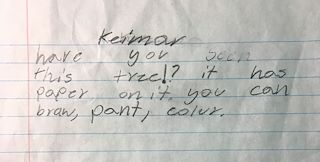 Keimar
have you seen
this tree!? it has
paper on it. you can
braw, pant, colur.